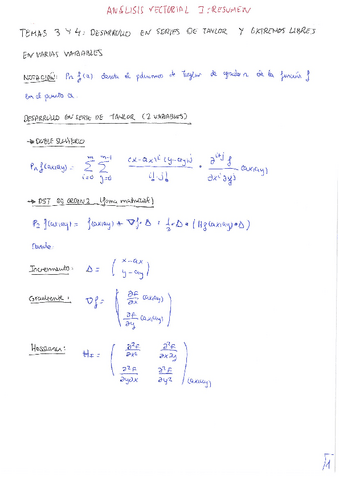 ANÁLISIS VECTORIAL I: RESUMEN
TEMAS 3 Y 4: DESARROLLO EN SERIES DE TAYLOR Y EXTREMOS LIBRES
EN VARIAS VARIABLES
NOTACIÓN: Pn f(a) denota el polinomio de Taylor de grado n de la función f
en el punto a.
DESARROLLO EN SERIE DE TAYLOR (2 VARIABLES)
→ DOBLE SUMATORIO
Pn f(ax,ay) = ∑_{i=0}^{n} ∑_{j=0}^{n-i} (x-ax)^i (y-ay)^j / (i! j!) · ∂^{i+j} f / (∂x^i ∂y^j) (ax,ay)
→ DST DE ORDEN 2 (forma matricial)
P2 f(ax,ay) = f(ax,ay) + ∇f · Δ + 1/2 · Δ · (Hf(ax,ay) · Δ)
donde:
Incremento: Δ = ( x-ax
y-ay )
Gradiente: ∇f = ( ∂f/∂x (ax,ay)
∂f/∂y (ax,ay) )
Hessiana: Hf = ( ∂²f/∂x² ∂²f/∂x∂y
∂²f/∂y∂x ∂²f/∂y² ) (ax,ay)